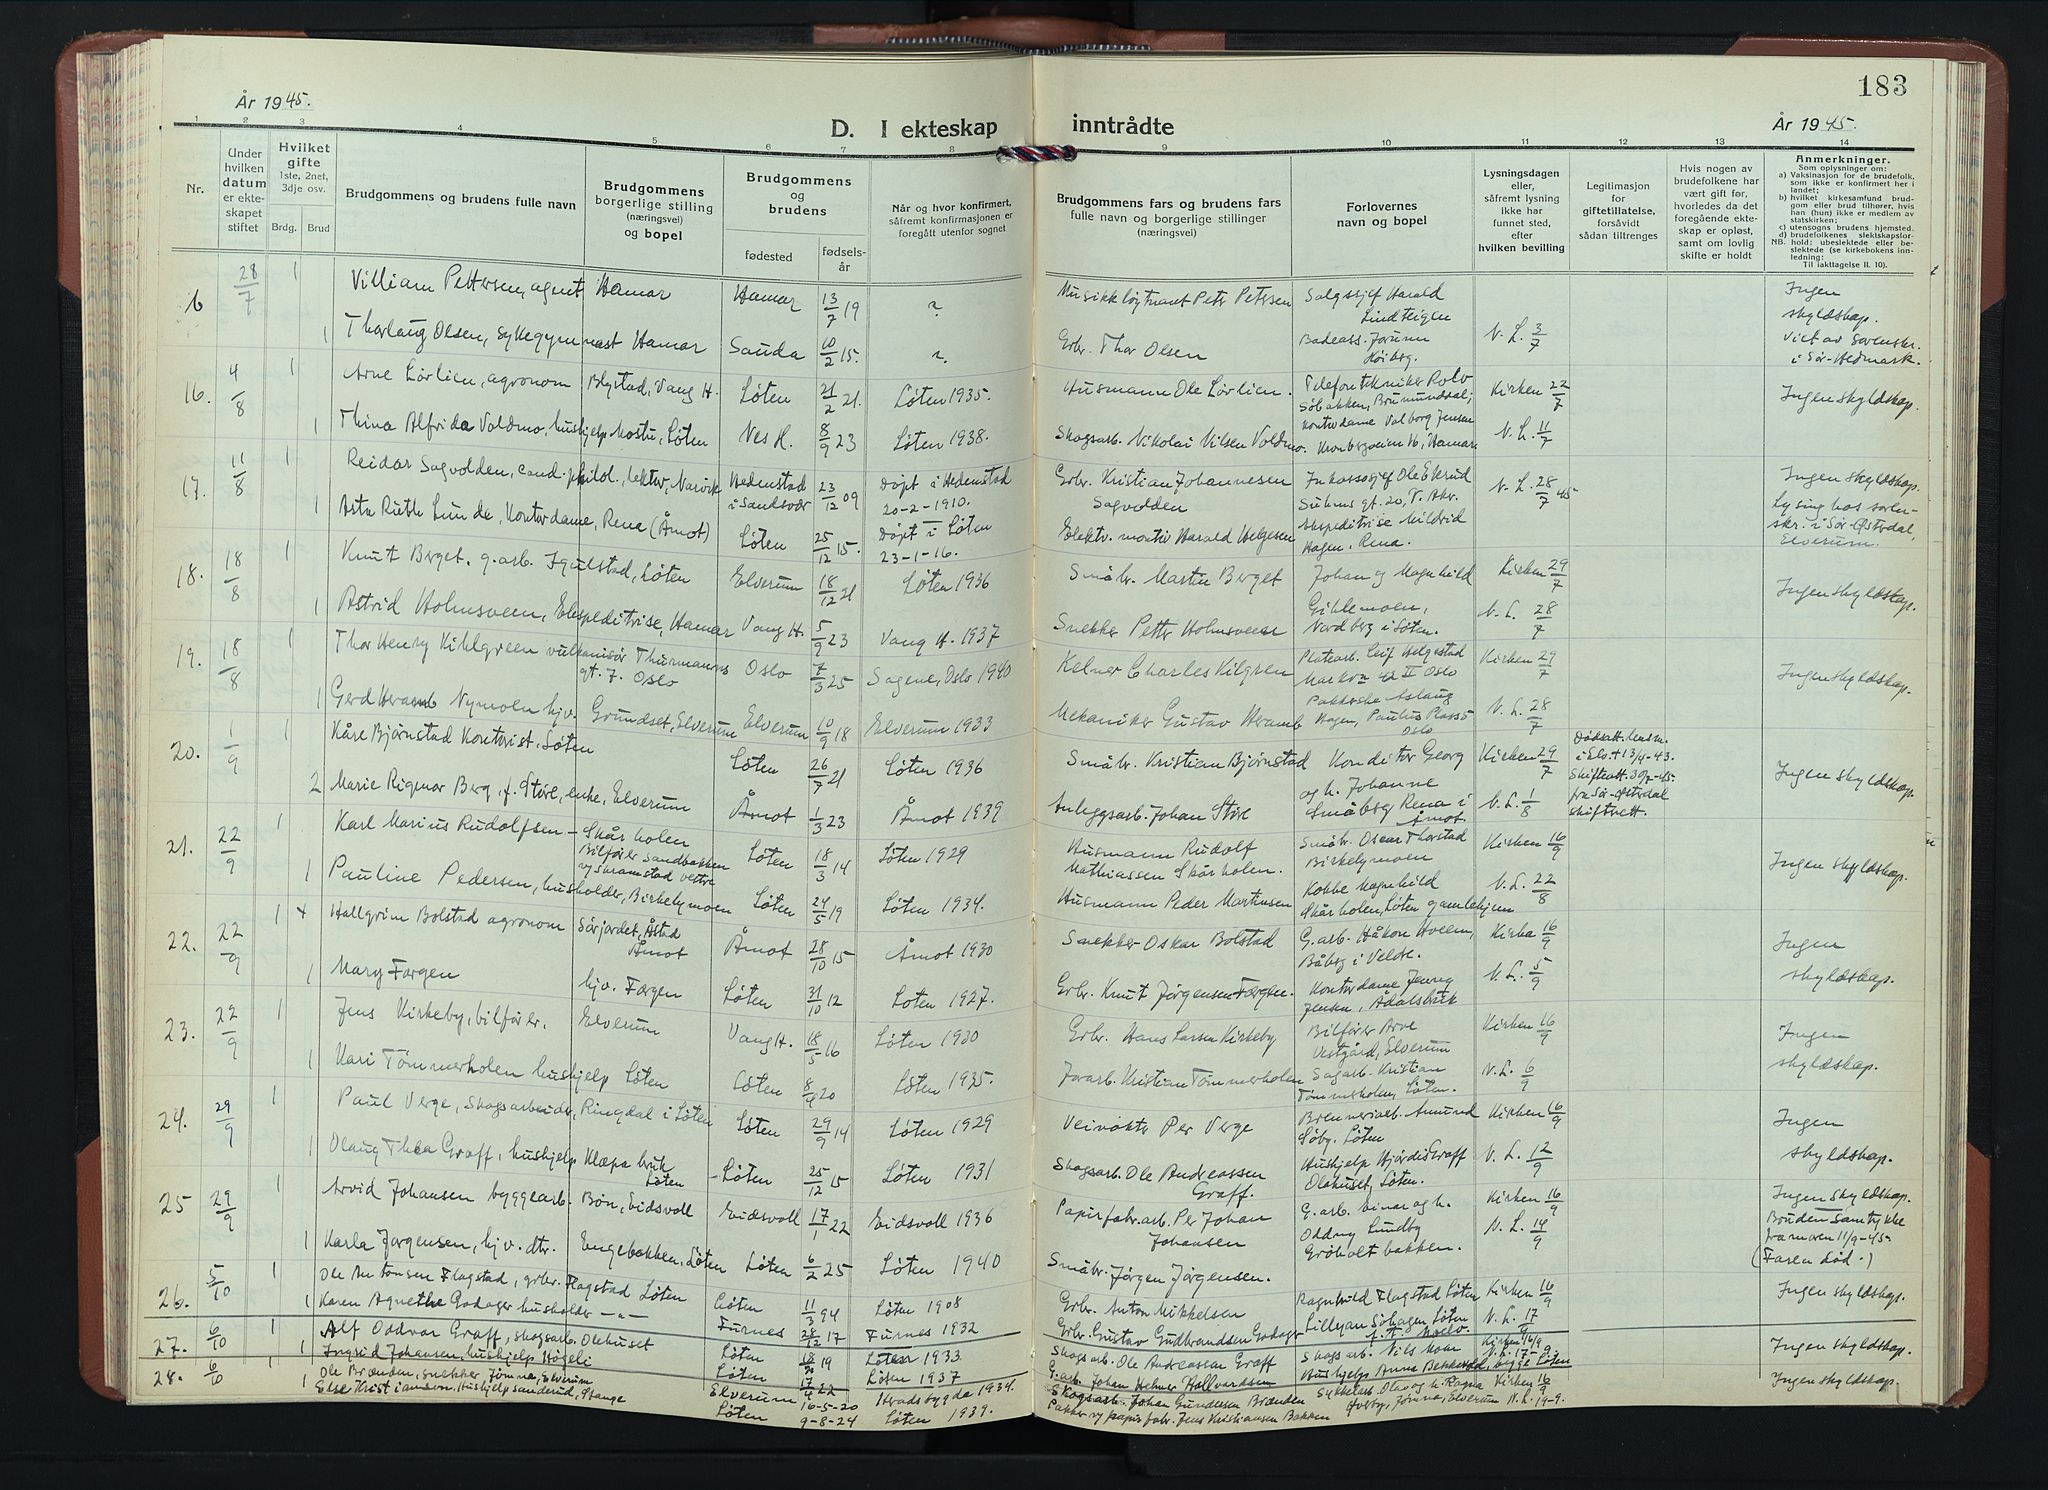 183
År 1945.
D. I ekteskap inntrådte
År 1945.
1 2 3 4 5 6 7 8 9 10 11 12 13 14
Nr.
Under hvilken datum er ekteskapet stiftet
Hvilket gifte 1ste, 2net, 3dje osv.
Brdg. Brud
Brudgommens og brudens fulle navn
Brudgommens borgerlige stilling (næringsvei) og bopel
Brudgommens og brudens
fødested
fødselsår
Når og hvor konfirmert, såfremt konfirmasjonen er foregått utenfor sognet
Brudgommens fars og brudens fars fulle navn og borgerlige stillinger (næringsvei)
Forlovernes navn og bopel
Lysningsdagen eller, såfremt lysning ikke har funnet sted, efter hvilken bevilling
Legitimasjon for giftetillatelse, forsåvidt sådan tiltrenges
Hvis nogen av brudefolkene har vært gift før, hvorledes da det foregående ekteskap er opløst, samt om lovlig skifte er holdt
Anmerkninger.
Som oplysninger om:
a) Vaksinasjon for de brudefolk, som ikke er konfirmert her i landet;
b) hvilket kirkesamfund brudgom eller brud tilhører, hvis han (hun) ikke er medlem av statskirken;
c) utensogns brudens hjemsted.
d) brudefolkenes slektskapsforhold: ubeslektede eller beslektede (se kirkebokens innledning:
NB.
Til iakttagelse II. 10).
6 28/7 1 Villiam Pettersen, agent Hamar Hamar 13/7 19 ? Musikkløytnant Petr Petersen Salgssjef Harald Lindteigen Ingen skyldskap.
1 Thorlaug Olsen, sykegymnast Hamar Sauda 10/2 15. ? Grbr. Thor Olsen Badeass. Jorunn Høiberg. N. L. 3/7 Viet av Sorenskr. i Sør-Hedmark.
16. 4/8 1 Arne Lørlien, agronom Blystad, Vang H. Løten 21/2 21. Løten 1935. Husmann Ole Lørlien. Telefontekniker Rolv Søbakken, Brumunddal; Kirken 22/7 Ingen skyldskap.
1 Thina Alfrida Voldmo, hushjelp Mostu, Løten Nes H. 8/9 23 Løten 1938. Skogsarb. Nikolai Nilsen Voldmo. Kontordame Valborg Jensen Kronborgveien 16, Hamar N. L. 11/7
17. 11/8 1 Reidar Sagvolden, cand. philol., lektor, Narvik Hedenstad i Sandsvær 23/12 09 Døpt i Hedenstad 20-2-1910. Grbr. Kristian Johannesen Sagvolden Inkassosjef Ole Ekrud Suhms gt. 20, V. Aker. N. L. 28/7 45 Ingen skyldskap.
1 Asta Ruth Lunde, Kontordame, Rena (Åmot) Løten 25/12 15. Døpt i Løten 23-1-16. Elektr. montør Harald Helgesen Ekspeditrise Mildrid Hagen, Rena. Lysing hos sorenskr. i Sør-Østerdal, Elverum.
18. 18/8 1 Knut Berget. g.arb. Igulstad, Løten Elverum 18/12 21 Løten 1936 Småbr. Martin Berget Johan og Magnhild Kirken 29/7 Ingen skyldskap.
1 Astrid Holmsveen, Ekspeditrise, Hamar Vang H. 5/9 23 Vang H. 1937 Snekker Petter Holmsveen Gihlemoen, Nordbg i Løten. N. L. 28/7
19. 18/8 1 Thor Henry Kihlgreen vulkanisør Thurmanns gt. 7. Oslo Oslo 7/3 25 Sagene, Oslo 1940 Kelner Charles Kilgren Platearb. Leif Helgestad Markvn 42 II Oslo Kirken 29/7 Ingen skyldskap.
1 Gerd Heramb Nymoen hjv. Grundset, Elverum Elverum 10/9 18 Elverum 1933 Mekaniker Gustav Heramb Pakkerske Aslaug Hagen, Paulus Plass 5 Oslo N. L. 28/7
20. 1/9 1 Kåre Bjørnstad Kontorist. Løten Løten 26/7 21 Løten 1936 Småbr. Kristian Bjørnstad Konditor Georg Kirken 29/7 Dødsatt. lensm. i Elv. + 13/4-43. Skifteatt. 30/7-45. fra Sør-Østerdal skifterett. Ingen skyldskap.
2 Marie Rigmor Berg, f. Støre, enke, Elverum Åmot 1/3 23 Åmot 1939 Anleggsarb. Johan Støre og h. Johanne Småberg Rena i Åmot N. L. 1/8
21. 22/9 1 Karl Marius Rudolfsen - Skårholen Bilfører Sandbakken v/ Skramstad vestre Løten 18/3 14 Løten 1929 Husmann Rudolf Mathiassen Skårholen. Småbr. Oscar Thorstad Birkelymoen Kirken 16/9 Ingen skyldskap.
1 Pauline Pedersen, husholder, Birkelymoen Løten 24/5 19 Løten 1934. Husmann Peder Martinsen Kokke Magnhild Skårholen, Løten gamlehjem N. L. 22/8
22. 22/9 1 Hallgrim Bolstad agronom Sørjordet, Åstad Åmot Åmot 28/10 15 Åmot 1930 Snekker Oskar Bolstad G.arb. Håkon Hveem, Båberg i Veldre. Kirke 16/9 Ingen skyldskap.
1 Mary Færgen hjv. Færgen Løten 31/10 12 Løten 1927. Grbr. Knut Jørgensen Færgen. Kontordame Jenny Jensen, Ådalsbruk N. L. 5/9
23. 22/9 1 Jens Kirkeby, bilfører. Elverum Vang H. 18/5 16 Løten 1930 Grbr. Hans Larsen Kirkeby Bilfører Arve Vestgård, Elverum Kirken 16/9 Ingen skyldskap.
1 Kari Tømmerholen hushjelp Løten Løten 8/4 20 Løten 1935. Jorarb. Kristian Tømmerholen Sagarb. Kristian Tømmerholen, Løten. N. L. 6/9
24. 29/9 1 Paul Verge, Skogsarbeider, Ringdal i Løten Løten 29/9 14 Løten 1929 Veivokter Per Verge Brenneriarb. Amund Søby. Løten Kirken 16/9 Ingen skyldskap.
1 Olaug Thea Graff, hushjelp Klæpa bruk Løten Løten 25/12 15 Løten 1931 Skogsarb. Ole Andreassen Graff. Hushjelp Hjørdis Graff Olahuset, Løten. N. L. 12/9
25 29/9 1 Arvid Johansen byggearb. Bøn, Eidsvoll Eidsvoll 17/1 22 Eidsvoll 1936 Papirfabr.arb. Per Johan Johansen G.arb. Einar og h. Kirken 16/9 Ingen skyldskap.
1 Karla Jørgensen, hjv. dtr. Engebakken, Løten Løten 6/2 25 Løten 1940 Småbr. Jørgen Jørgensen. Oddny Lundby Grøholtbakken. N. L. 14/9 Bruden samtykke fra moren 11/9-45 (Faren død.)
26. 5/10 1 Ole Antonsen Flagstad, grbr. Flagstad Løten Løten 11/3 94 Løten 1908 Grbr. Anton Mikkelsen Ragnhild Flagstad Løten Kirken 16/9 Ingen skyldskap.
1 Karen Agnethe Godager husholder -"- Furnes 28/12 17 Furnes 1932 Grbr. Gustav Gudbrandsen Godager Lillyan Sørhagen Løten N. L. 17/9
27. 6/10 1 Alf Oddvar Graff, skogsarb. Olehuset Løten 19 Løten 1933 Skogsarb. Ole Andreassen Graff Skogsarb. Nils Moen Kirken 16/9 Ingen skyldskap.
1 Ingrid Johansen, hushjelp Høgeli Løten 17/4 22 Løten 1937 G.arb. Johan Helmer Hallvardsen Hushjelp Anna N.L. 17-9
28. 6/10 1 Ole Brænden, snekker, Jømna, Elverum Elverum 16-5-20 Strandbygda 1934. Skogsarb. Johan Gundersen Brænden Sykkelrep. Olav og h. Ragna Kirken 16/9 Ingen skyldskap.
Else Kristiansen, Hushjelp Sanderud, Stange Løten 9-8-24 Løten 1939. Pakker v/ papirfabr. Jens Kristiansen Bakken Jømna, Elverum N.L. 19-9.